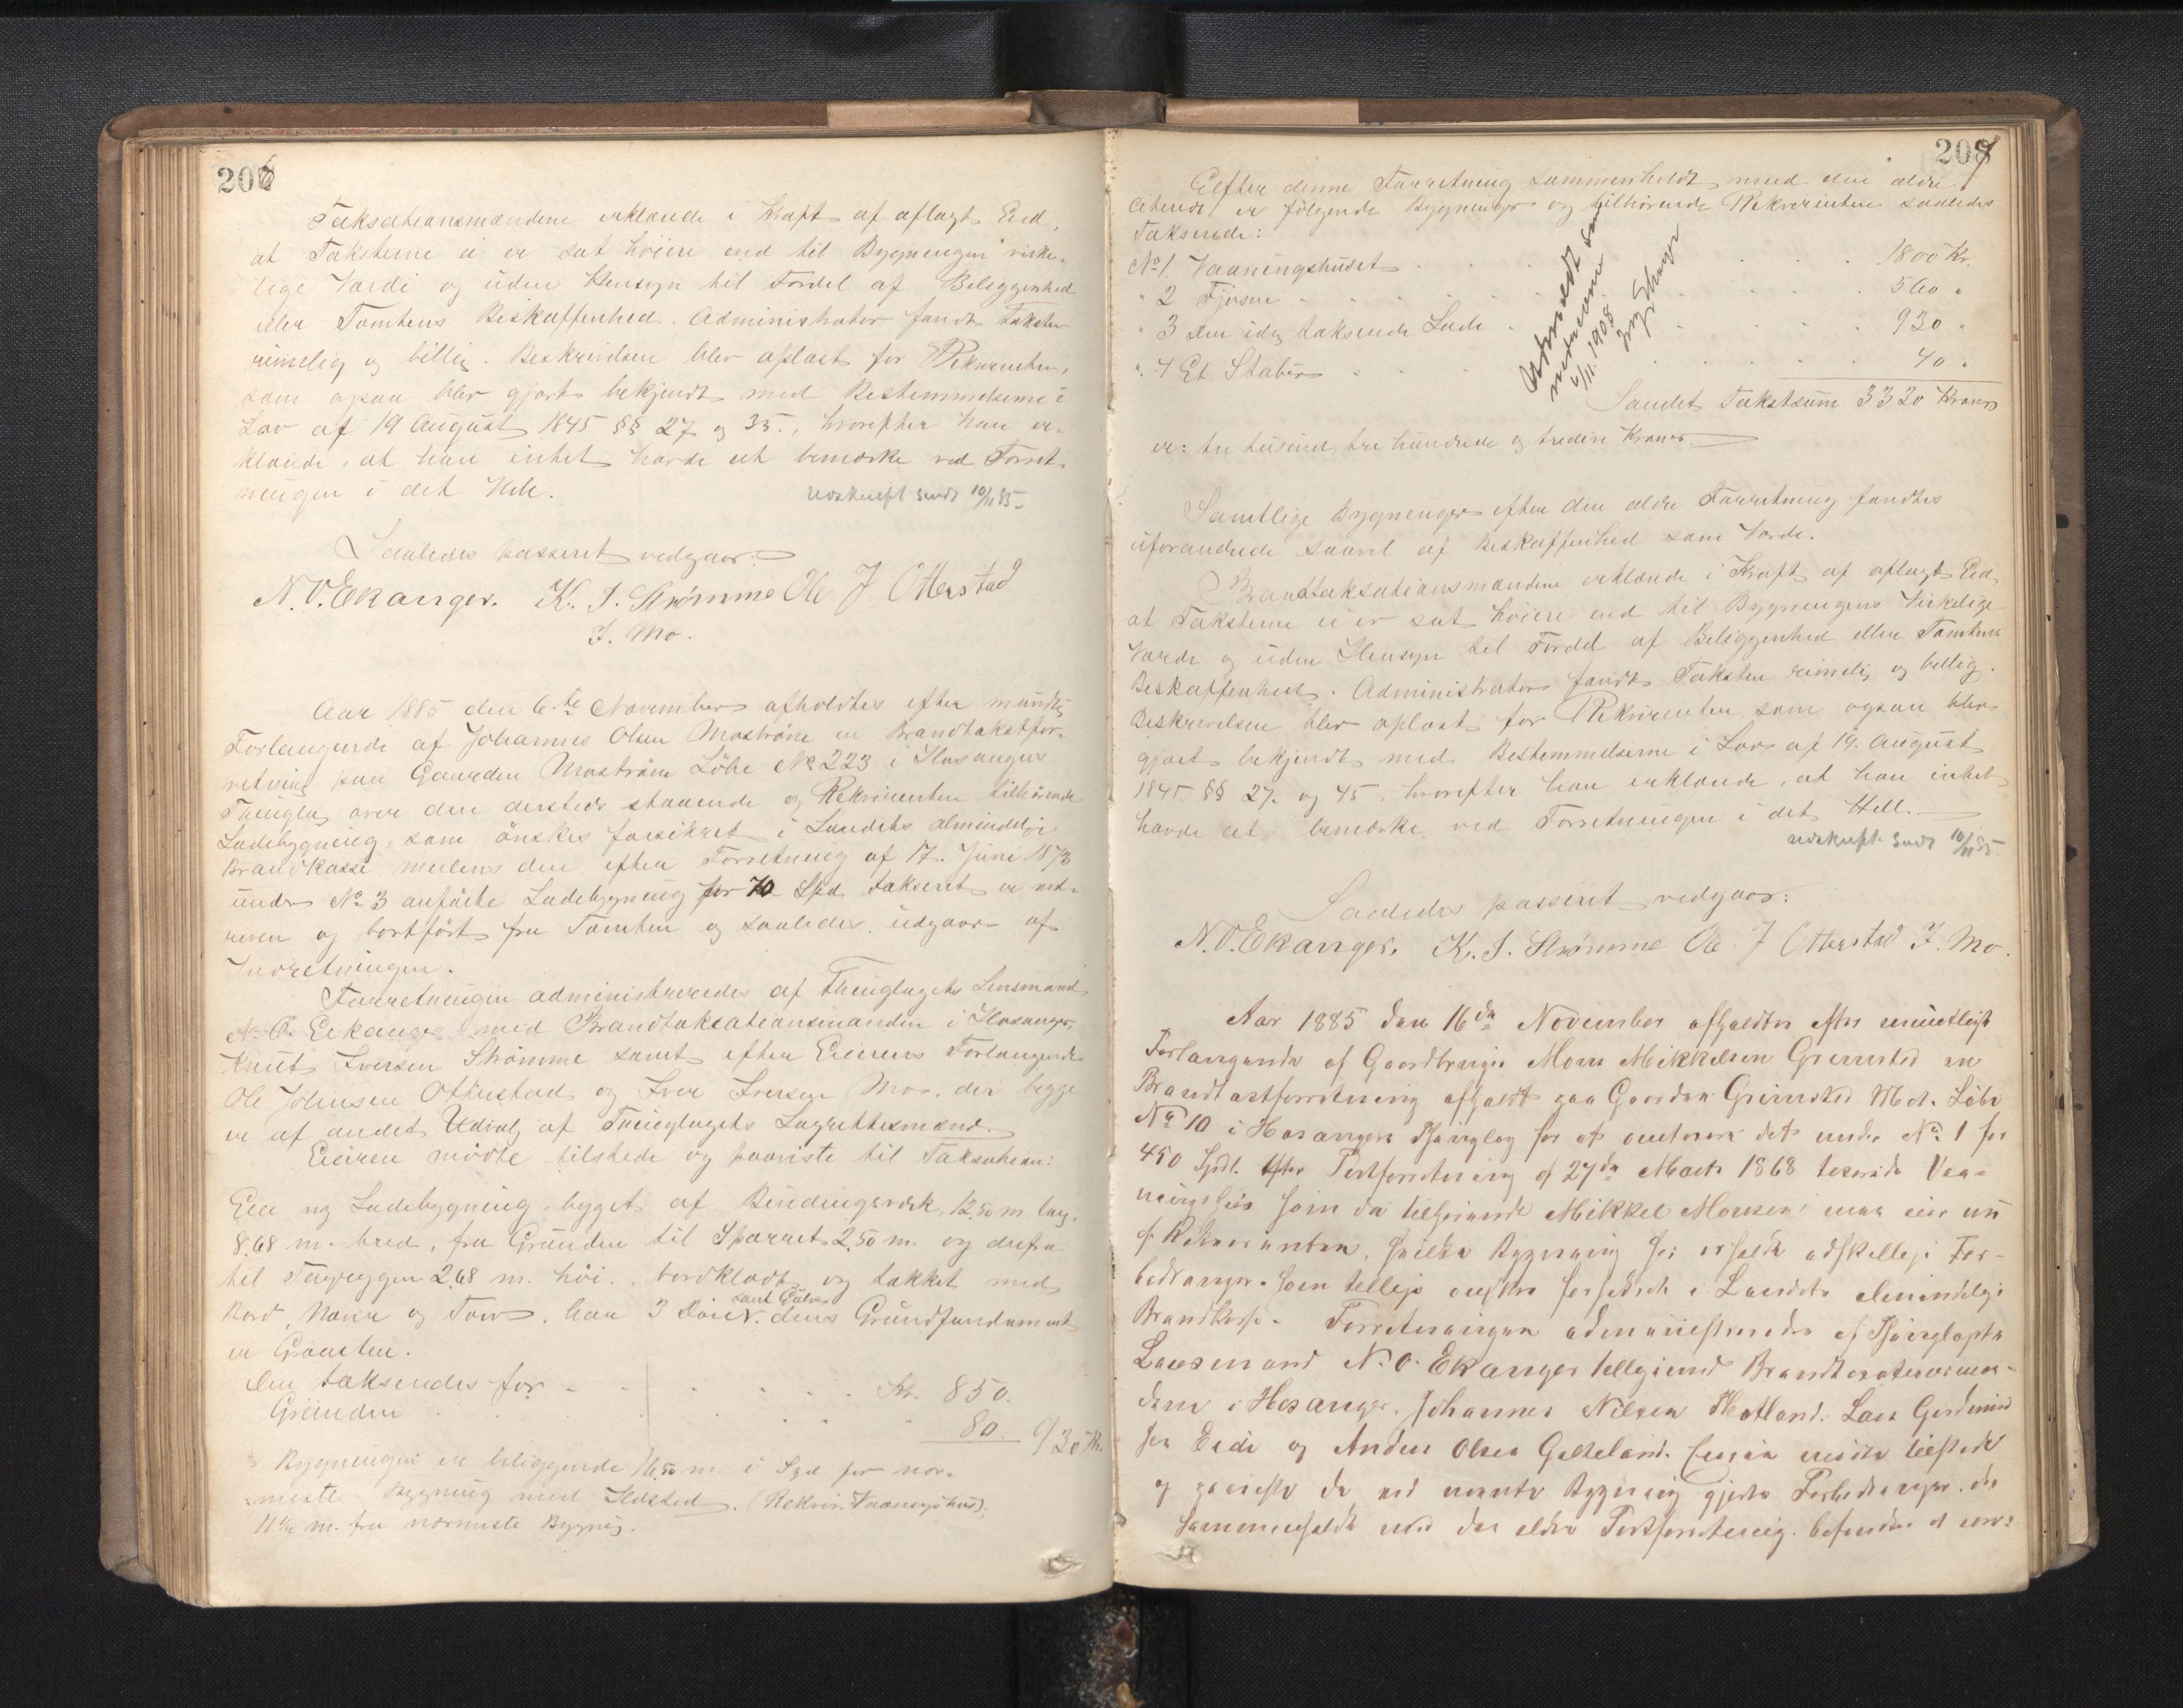 206
Taksationsmændene erklærede i Kraft af aflagt Eed,
at Taksterne ei er sat høiere end til Bygningens virke-
lige Værdi og uden Hensyn til Fordel af Beliggenhed
eller Tomtens Beskaffenhed. Administrator fandt Taksten
rimelig og billig. Beskrivelsen blev oplæst for Rekvirenten,
som ogsaa blev gjort bekjendt med Bestemmelserne i
Lov af 19 August 1845 §§ 27 og 35., hvorefter han er-
klærede, at han intet havde at bemærke ved Forret-
ningen i det Hele.
udskrift sendt 10/11 85
Saaledes passeret vedgaar:
N. O. Ekanger. K. I. Strømme Ole J Otterstad
I. Mo.
Aar 1885 den 6.te November afholdtes efter mundtlig
Forlangende af Johannes Olsen Mostrøm en Brandtakstfor-
retning paa Gaarden Mostrøm Løbe No 223 i Hosangers
Thinglag over den dersteds staaende og Rekvirenten tilhørende
Ladebygning, som ønskes forsikret i Landets almindelige
Brandkasse, medens den efter Forretning af 17. Juni 1873
under No 3 anførte Ladebygning for 70 Spd. takseret er ned-
reven og bortført fra Tomten og saaledes udgaar af
Indretningen.
Forretningen administreredes af Thinglagets Lensmand
N. O. Eekanger med Brandtaksationsmanden i Hosanger,
Knut Iversen Strømme samt efter Eierens Forlangende
Ole Johnsen Otterstad og Iver Iversen Mo, der begge
er af andet Udvalg af Thinglagets Lagrettesmænd.
Eieren mødte tilstede og paaviste til Taksation:
En ny Ladebygning, bygget af Bindingsværk, 12,50 m lang,
8,68 m. bred, fra Grunden til Sparret 2,50 m. og derfra
til Tagryggen 2,68 m. høi, bordklædt og takket med
Bord, Næver og Torv, har 3 Døre samt Gulv. dens Grundfundament
er Graasten.
den takseredes for Kr. 850.
Grunden " 80. 930 Kr.
Bygningen er beliggende 16,50 m i Syd for nær-
meste Bygning med Ildsted. (Rekvir. Vaaningshus),
11 1/2 m. fra nærmeste Bygnig.
207
Eefter denne Forretning sammenholdt med den ældre
citerede er følgende Bygninger og tilhørende Rekvirenten saaledes
Takserede:
No 1. Vaaningshuset 1800 Kr.
" 2 Fjøsen 560 "
" 3 den idag takserede Lade 930 "
" 4 Et Stabur 40 "
Samlet Takstsum 3330 Kroner
er: tre tusind, tre hundrede og tredive Kroner.
6/11. 1908
Samtlige Bygninger efter den ældre Forretning fandtes
uforandrede saavel af Beskaffenhed som Værdi.
Brandtaksationsmændene erklærede i Kraft af aflagt Eed,
at Taksterne ei er sat høiere end til Bygningens Virkelige
Værdi og uden Hensyn til Fordel af Beliggenhed eller Tomtens
Beskaffenhed. Administrator fandt Taksten rimelig og billig.
Beskrivelsen blev oplæst for Rekvirenten, som ogsaa blev
gjort bekjendt med Bestemmelserne i Lov af 19. August
1845 §§ 27. og 45, hvorefter han erklærede, at han intet
havde at bemærke ved Forretningen i det Hele.
udskrift sendt 10/11 85.
Saaledes passeret vedgaar:
N. O. Ekanger. K. I. Strømme Ole J Otterstad I. Mo.
Aar 1885 den 16de November afholdtes efter mundtligt
Forlangende af Gaardbruger Mons Mikkelsen Grimsted en
Brandtaxtforretning afholdt paa Gaarden Grimsted Løbe
No 10 i Hosangers Thinglag for at omtaxere det under No 1 for
450 Spdl. efter Taxtforretning af 27de Marts 1868 taxerede Vaa-
ningshus som da tilhørende Mikkel Monsen men eies nu
af Rekvirenten, hvilken Bygning har erholdt adskillige For-
bedringer. Som tillige ønskes forsikret i Landets Almindelige
Brandkasse. Forretningen administreredes af Thinglagets
Lensmand N. O. Ekanger tilligemed Brandtaxationsmæn-
dene i Hosanger, Johannes Nilsen Hotland, Lars
sen Eide og Anders Olsen Gulleland. Eieren mødte tilstede
og paaviste de ved nævnte Bygning gjorte Forbedringer. der
sammenholdt med den ældre Taxtforretning. befandtes at være: